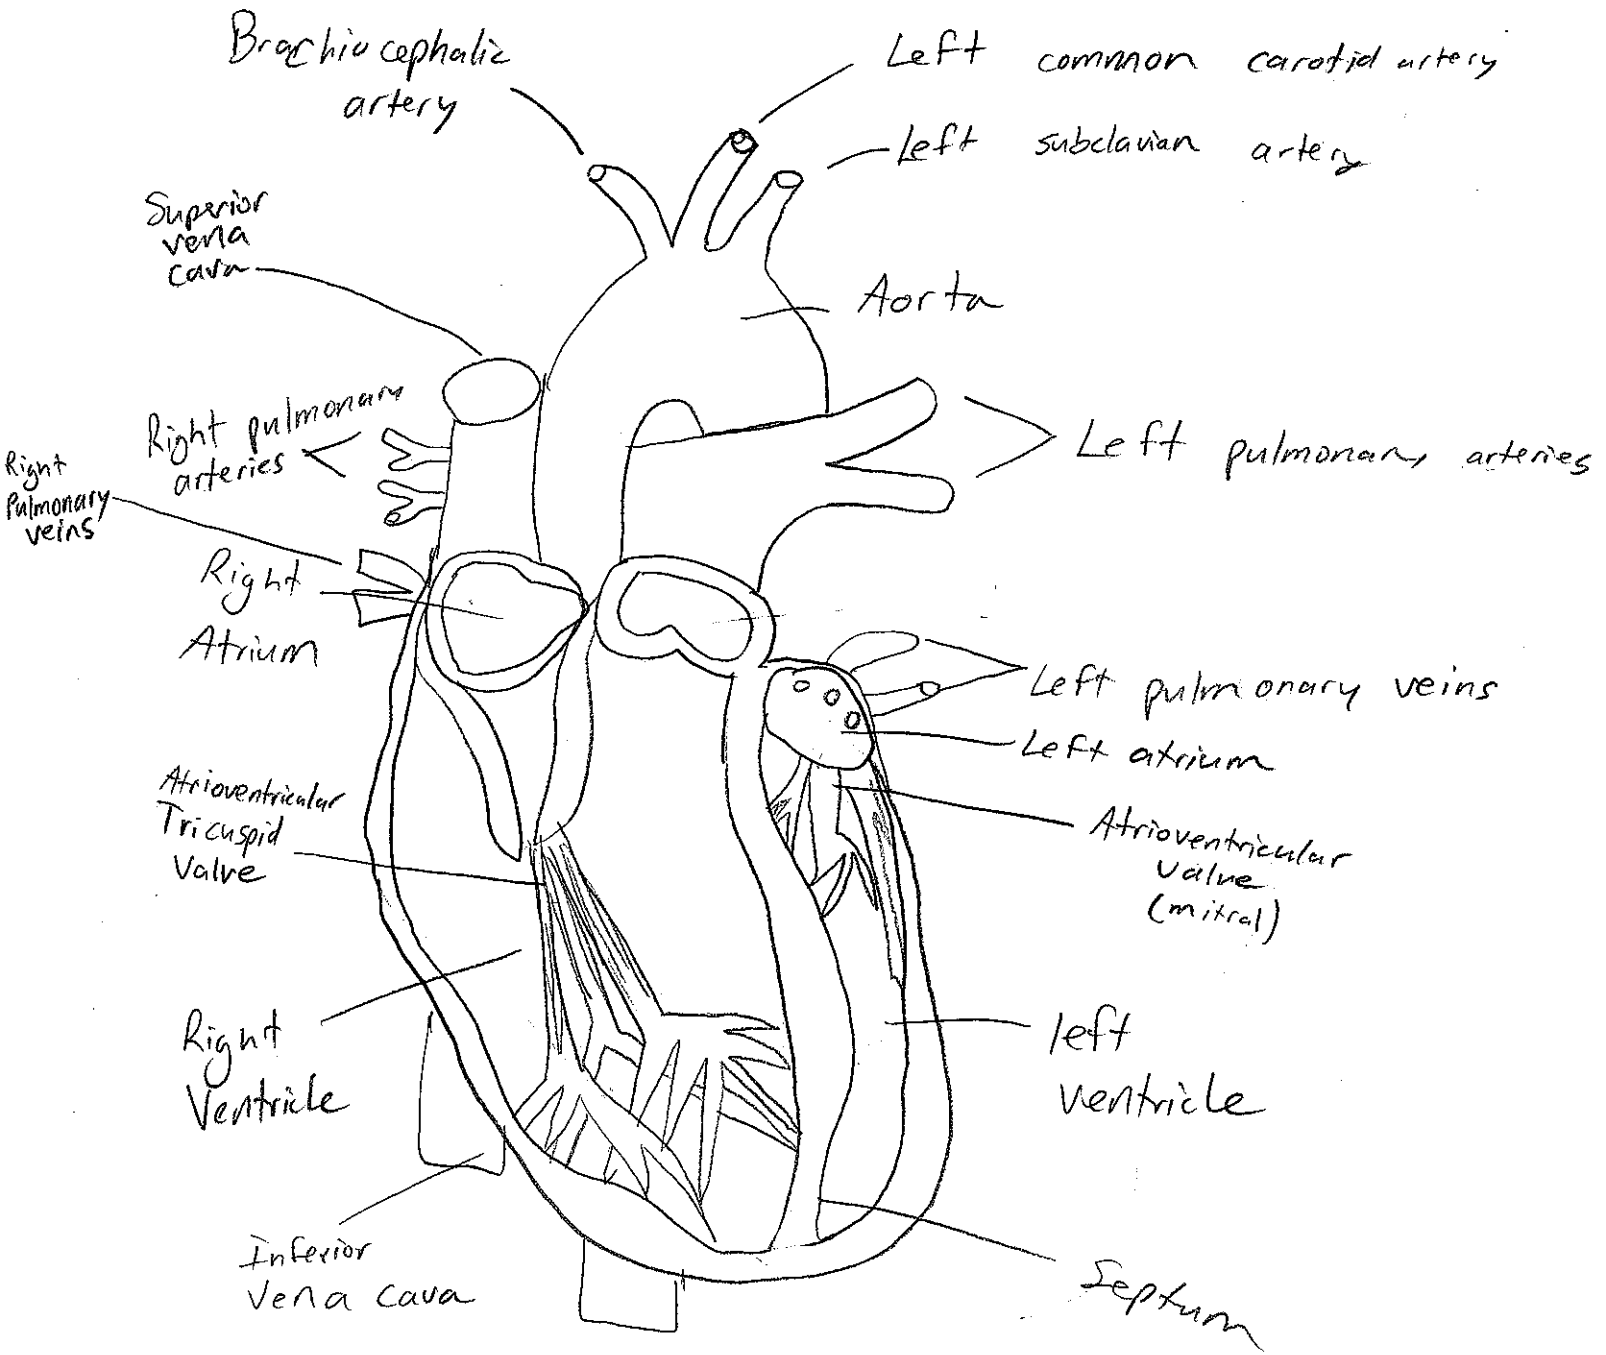 Brachiocephalic
artery
Left common carotid artery
Left subclavian artery
Superior
vena
cava
Aorta
Right pulmonary
arteries
Left pulmonary arteries
Right
Pulmonary
veins
Right
Atrium
Left pulmonary veins
Left atrium
Atrioventricular
Tricuspid
Valve
Atrioventricular
valve
(mitral)
Right
Ventricle
left
ventricle
Inferior
vena cava
Septum